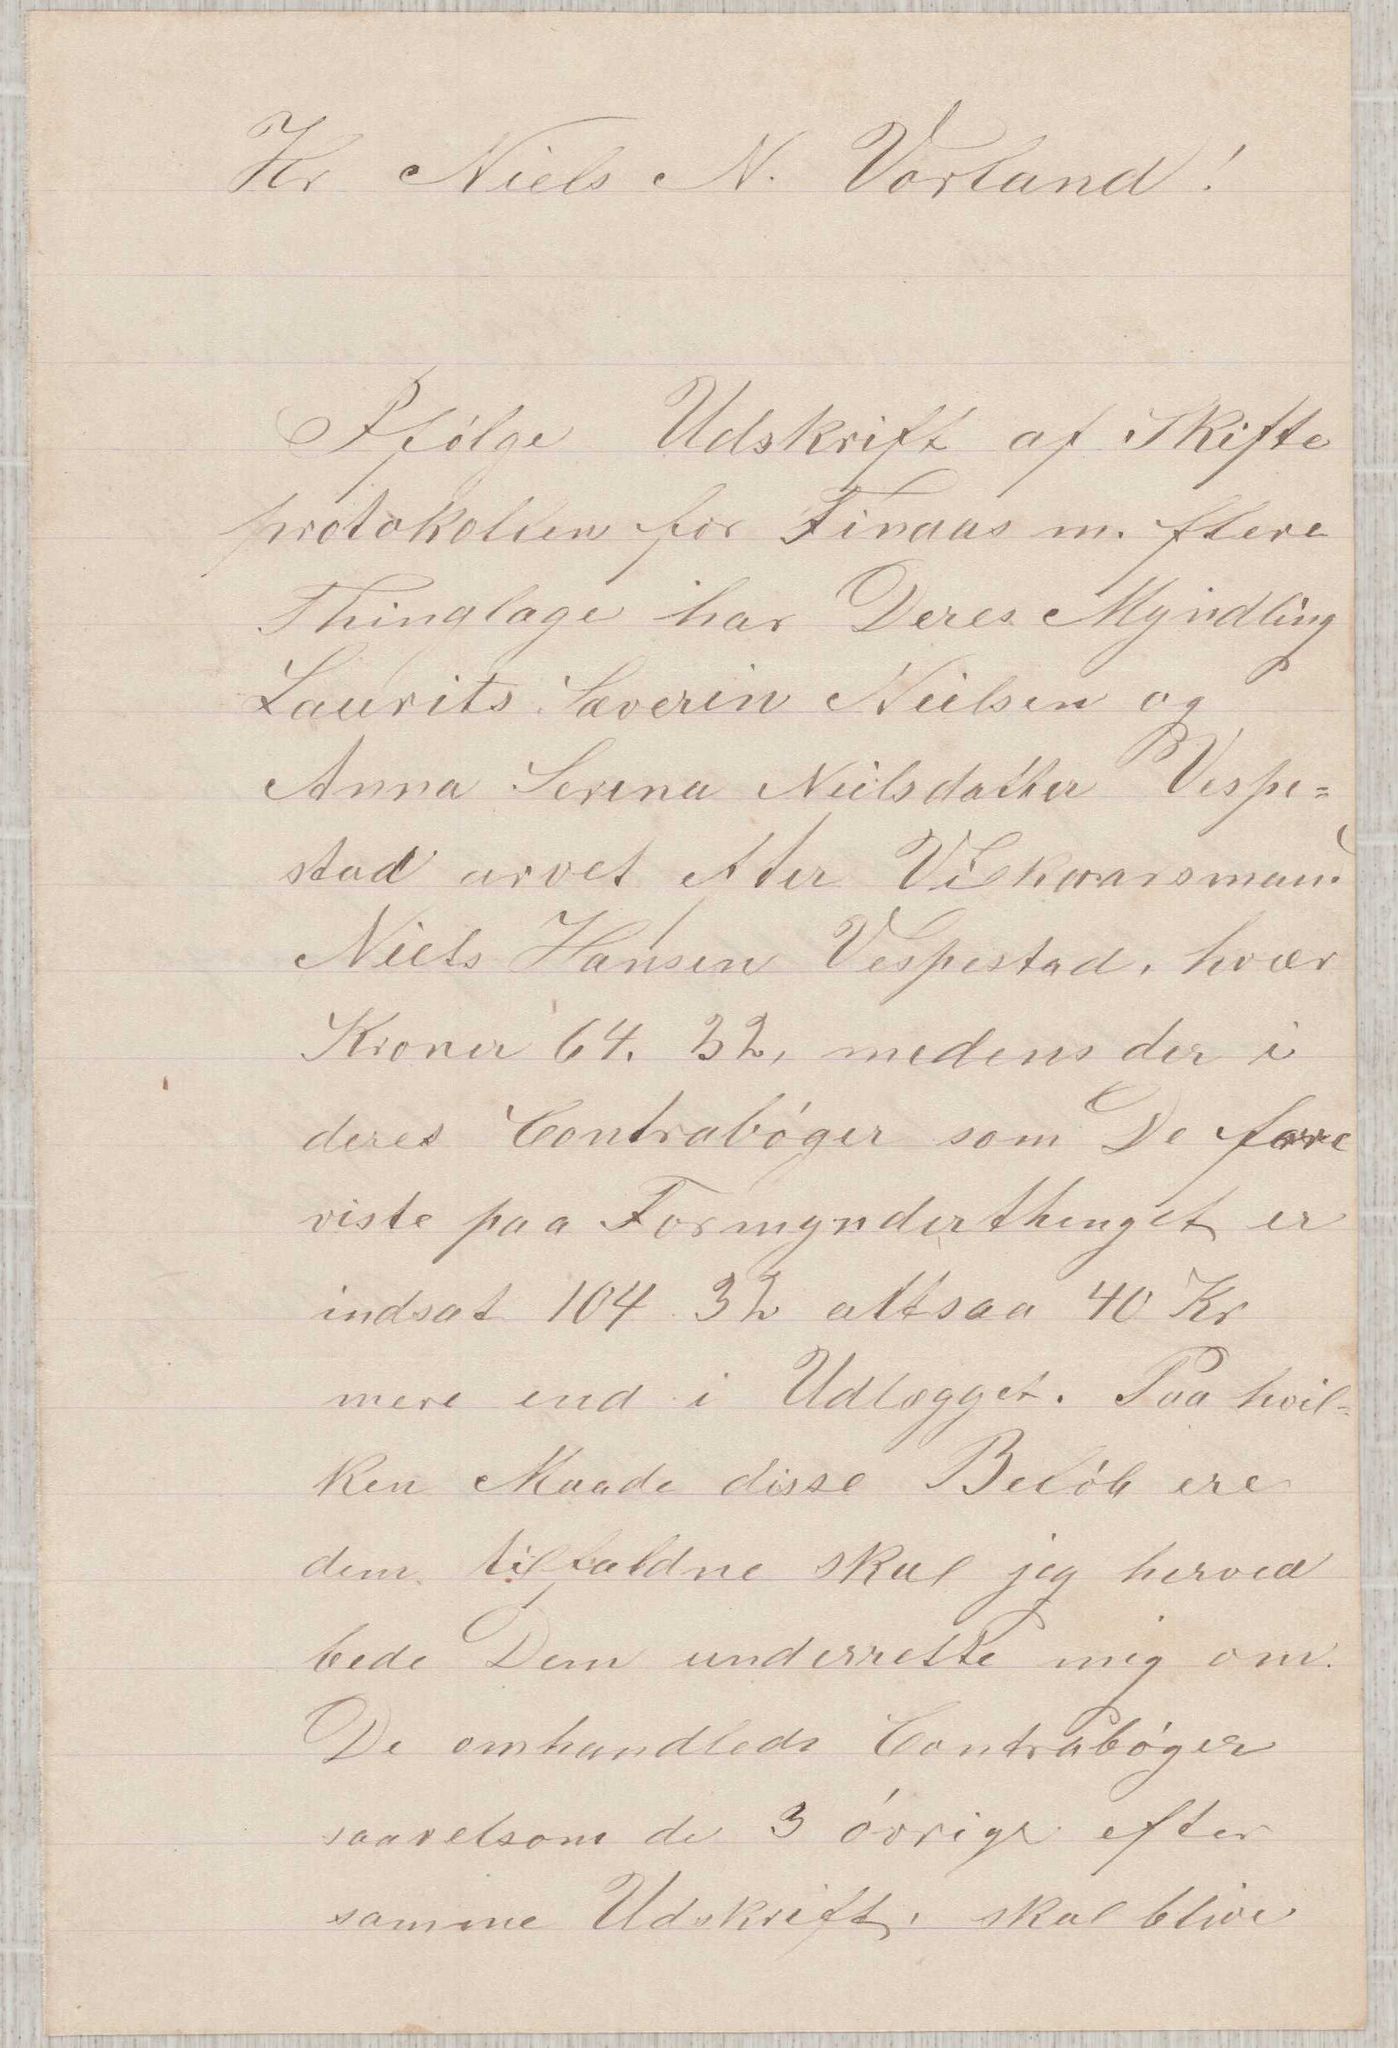 Hr Niels N. Vorland!
Ifölge Udskrift af Skifte
protokollen for Finaas m. flere
Thinglage har Deres Myndling
Laurits Severin Nielsen og
Anna Serina Neilsdatter Vespe=
stad arvet efter Vilkaarsmand
Niels Hansen Vespestad, hver
Kroner 64. 32, medens der i
deres Contraböger som De fore
viste paa Formynderthinget er
indsat 104 32 altsaa 40 Kr
mere end i Udlægget. Paa hvil-
ken Maade disse Belöb ere
dem tilfaldne skal jeg herved
bede Dem underrette mig om.
De omhandlede Contraböger
saavelsom de 3 övrige efter
samme Udskrift, skal blive